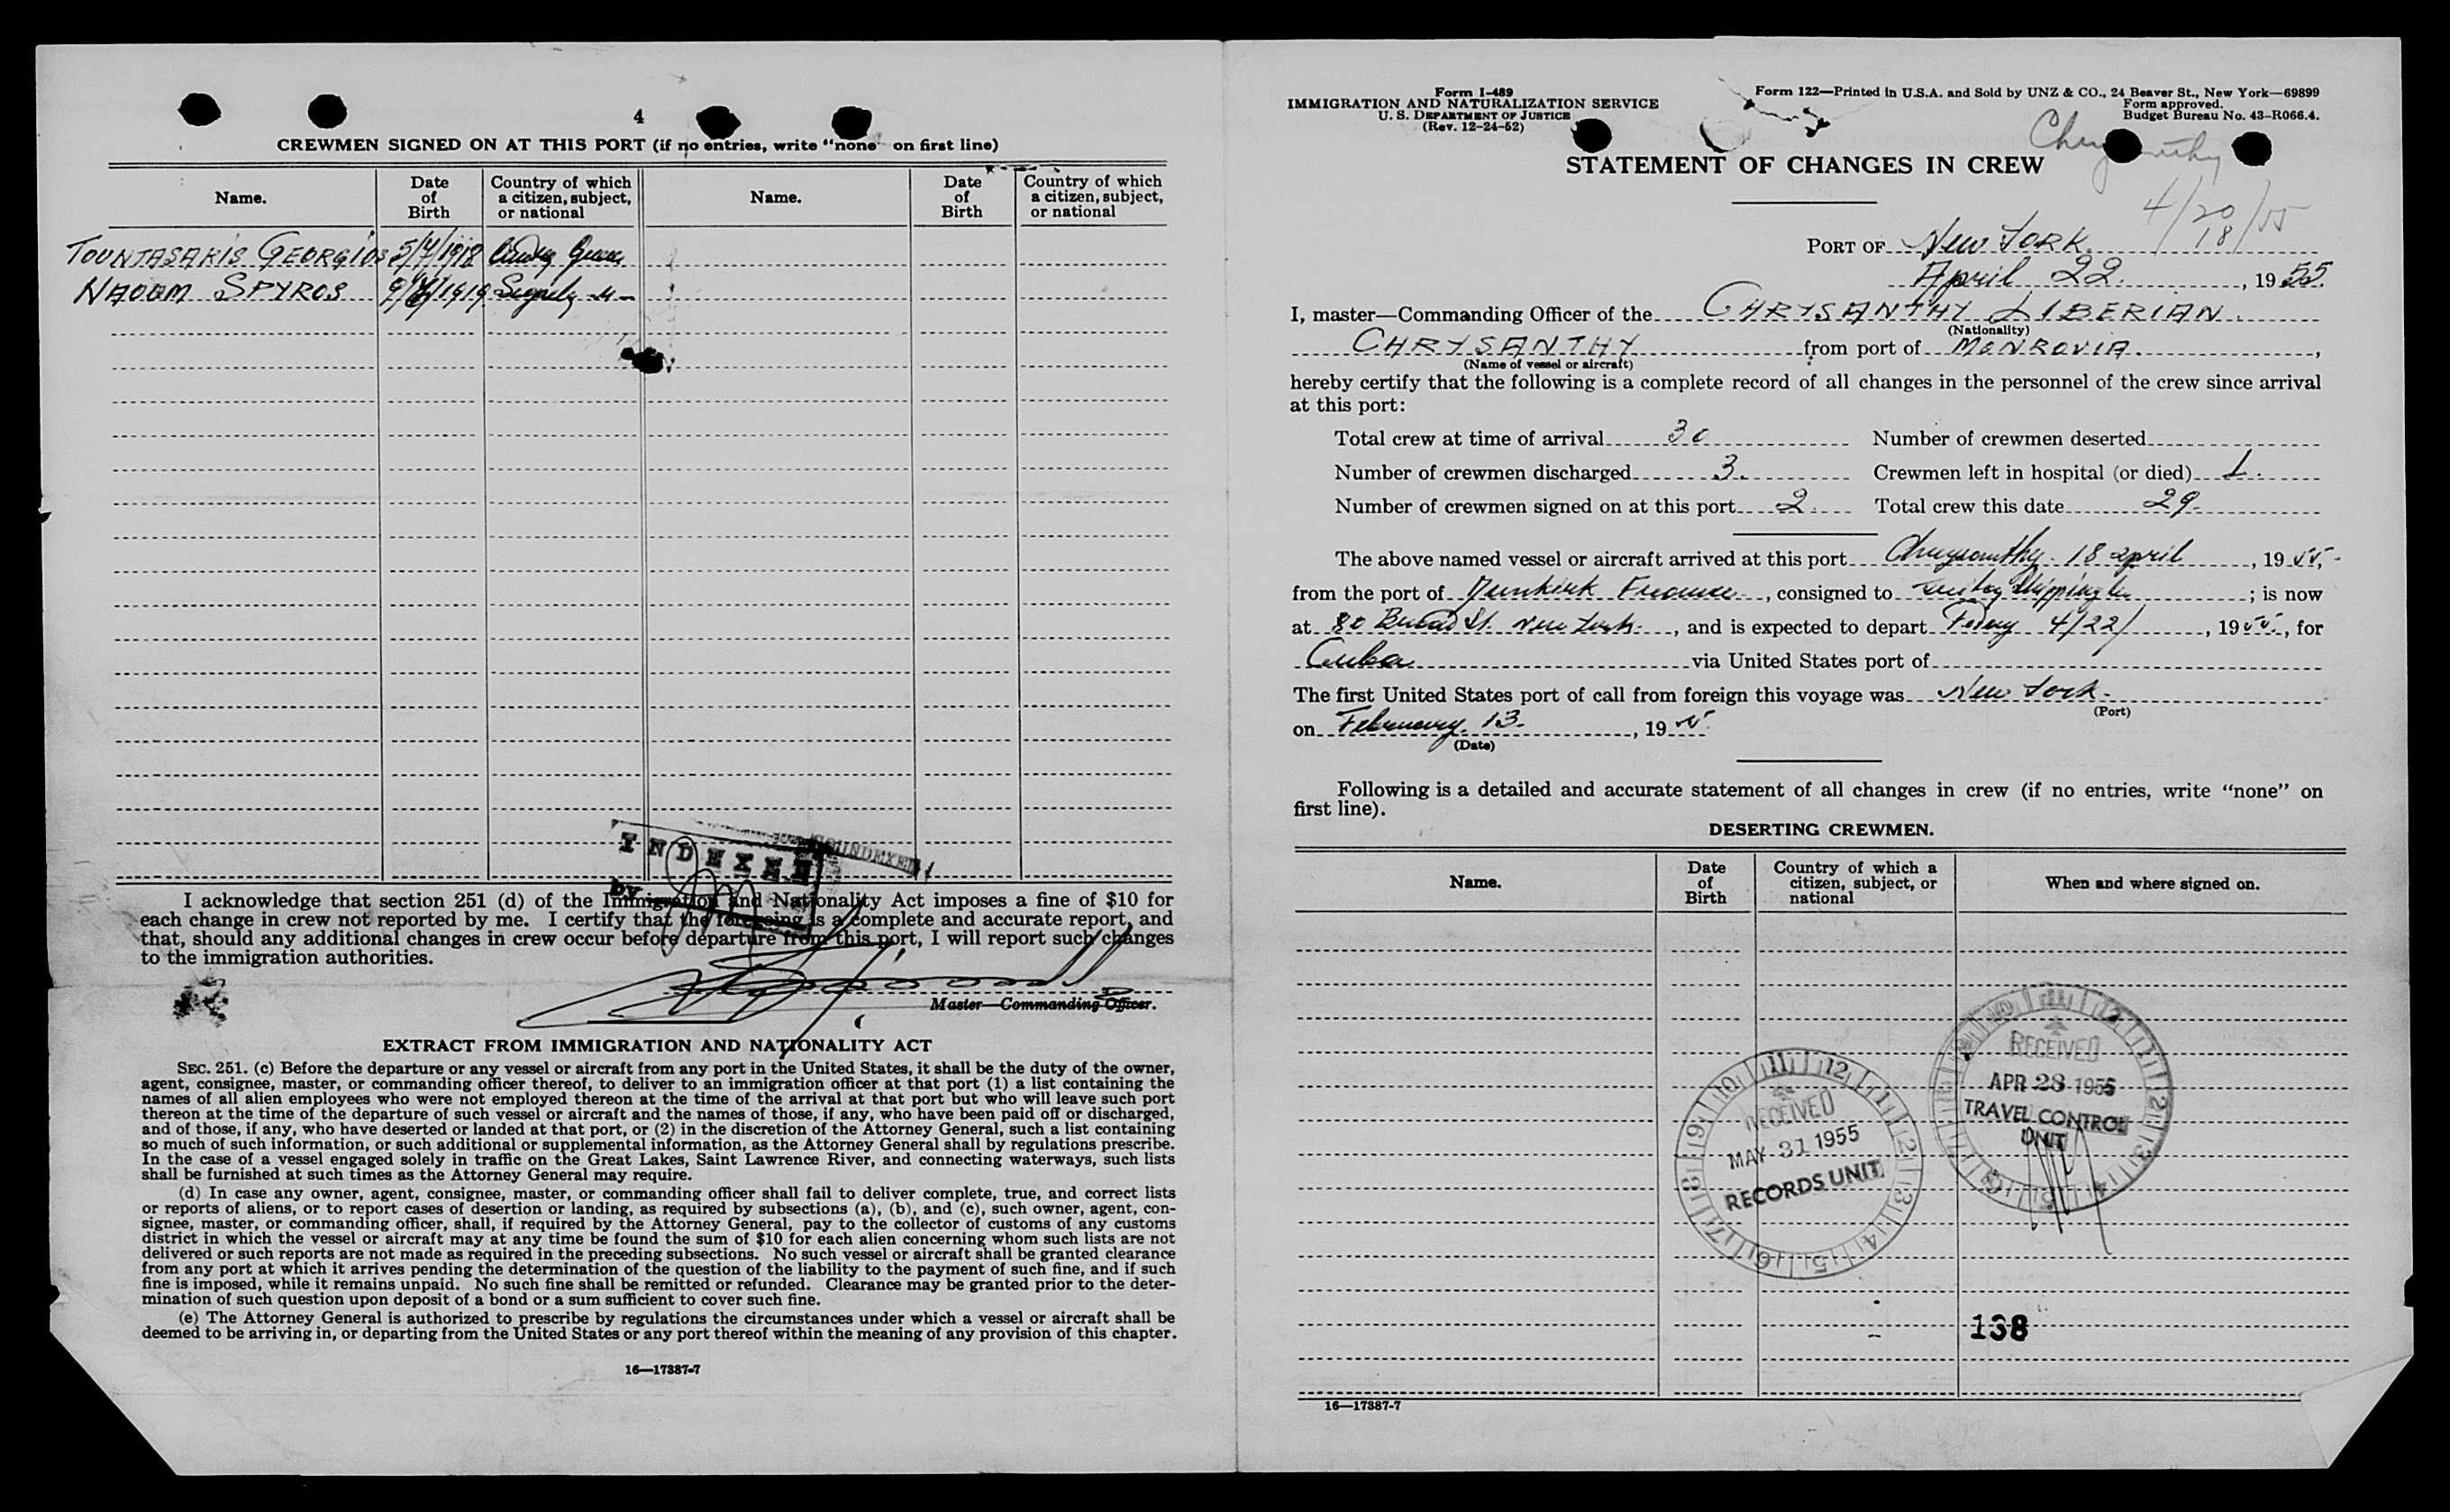 4
CREWMEN SIGNED ON AT THIS PORT (if no entries, write "none" on first line)
Name. Date of Birth Country of which a citizen, subject, or national Name. Date of Birth Country of which a citizen, subject, or national
TOUNTASAKIS GEORGIOS 5/7/1918
NAOUM SPYROS
INDEXED
by
I acknowledge that section 251 (d) of the Immigration and Nationality Act imposes a fine of $10 for
each change in crew not reported by me. I certify that the foregoing is a complete and accurate report, and
that, should any additional changes in crew occur before departure from this port, I will report such changes
to the immigration authorities.
Master—Commanding Officer.
EXTRACT FROM IMMIGRATION AND NATIONALITY ACT
SEC. 251. (c) Before the departure or any vessel or aircraft from any port in the United States, it shall be the duty of the owner,
agent, consignee, master, or commanding officer thereof, to deliver to an immigration officer at that port (1) a list containing the
names of all alien employees who were not employed thereon at the time of the arrival at that port but who will leave such port
thereon at the time of the departure of such vessel or aircraft and the names of those, if any, who have been paid off or discharged,
and of those, if any, who have deserted or landed at that port, or (2) in the discretion of the Attorney General, such a list containing
so much of such information, or such additional or supplemental information, as the Attorney General shall by regulations prescribe.
In the case of a vessel engaged solely in traffic on the Great Lakes, Saint Lawrence River, and connecting waterways, such lists
shall be furnished at such times as the Attorney General may require.
(d) In case any owner, agent, consignee, master, or commanding officer shall fail to deliver complete, true, and correct lists
or reports of aliens, or to report cases of desertion or landing, as required by subsections (a), (b), and (c), such owner, agent, con-
signee, master, or commanding officer, shall, if required by the Attorney General, pay to the collector of customs of any customs
district in which the vessel or aircraft may at any time be found the sum of $10 for each alien concerning whom such lists are not
delivered or such reports are not made as required in the preceding subsections. No such vessel or aircraft shall be granted clearance
from any port at which it arrives pending the determination of the question of the liability to the payment of such fine, and if such
fine is imposed, while it remains unpaid. No such fine shall be remitted or refunded. Clearance may be granted prior to the deter-
mination of such question upon deposit of a bond or a sum sufficient to cover such fine.
(e) The Attorney General is authorized to prescribe by regulations the circumstances under which a vessel or aircraft shall be
deemed to be arriving in, or departing from the United States or any port thereof within the meaning of any provision of this chapter.
16—17387-7
Form I-489
IMMIGRATION AND NATURALIZATION SERVICE
U. S. DEPARTMENT OF JUSTICE
(Rev. 12-24-52)
Form 122—Printed in U.S.A. and Sold by UNZ & CO., 24 Beaver St., New York—69899
Form approved.
Budget Bureau No. 43-R066.4.
STATEMENT OF CHANGES IN CREW
4/20/55
18
PORT OF New York
April 22, 1955.
I, master—Commanding Officer of the CHRYSANTHY LIBERIAN.
(Nationality)
CHRYSANTHY from port of MONROVIA.,
(Name of vessel or aircraft)
hereby certify that the following is a complete record of all changes in the personnel of the crew since arrival
at this port:
Total crew at time of arrival 30 Number of crewmen deserted
Number of crewmen discharged 3. Crewmen left in hospital (or died) 1.
Number of crewmen signed on at this port 2. Total crew this date 29.
The above named vessel or aircraft arrived at this port Chrysanthy. 18 april, 1955.
from the port of Dunkirk France, consigned to Shipping; is now
at 80 Broad St. New York., and is expected to depart 4/22/, 1955., for
Cuba via United States port of
The first United States port of call from foreign this voyage was New York.
(Port)
on February. 13., 1955.
(Date)
Following is a detailed and accurate statement of all changes in crew (if no entries, write "none" on
first line).
DESERTING CREWMEN.
Name. Date of Birth Country of which a citizen, subject, or national When and where signed on.
RECEIVED
APR 28 1955
TRAVEL CONTROL
UNIT
RECEIVED
MAY 31 1955
RECORDS UNIT
138
16—17387-7